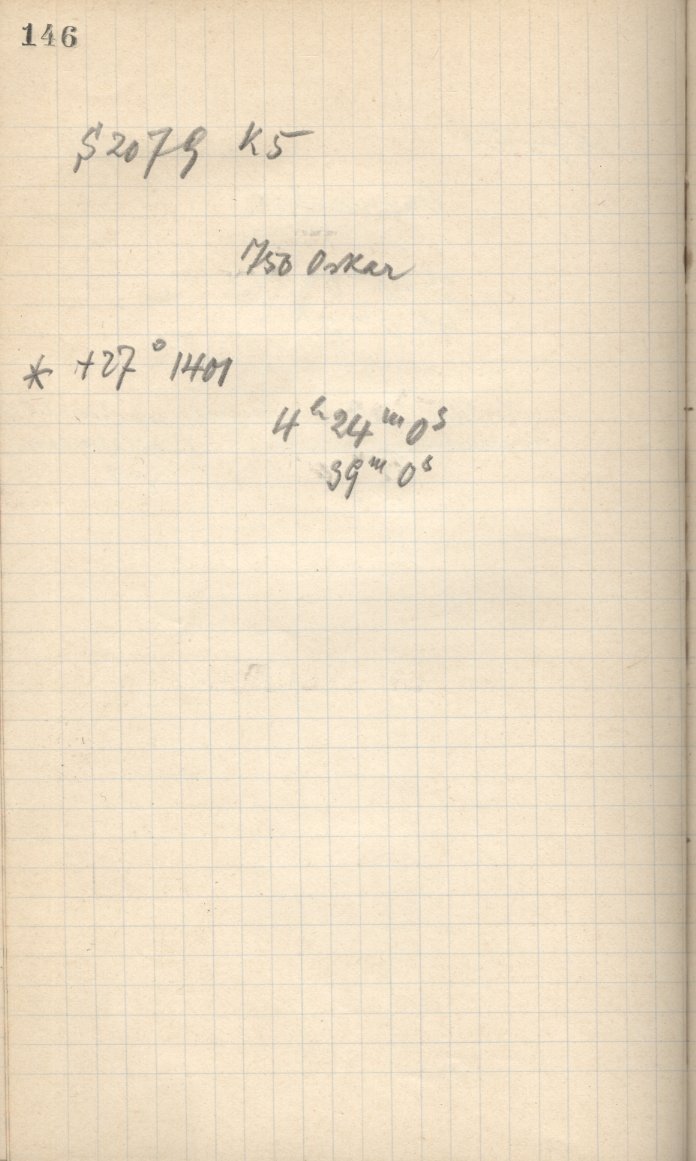 146
S 2079 K5
750 Oskar
* +27° 1401
4ʰ 24ᵐ 0ˢ
39ᵐ 0ˢ